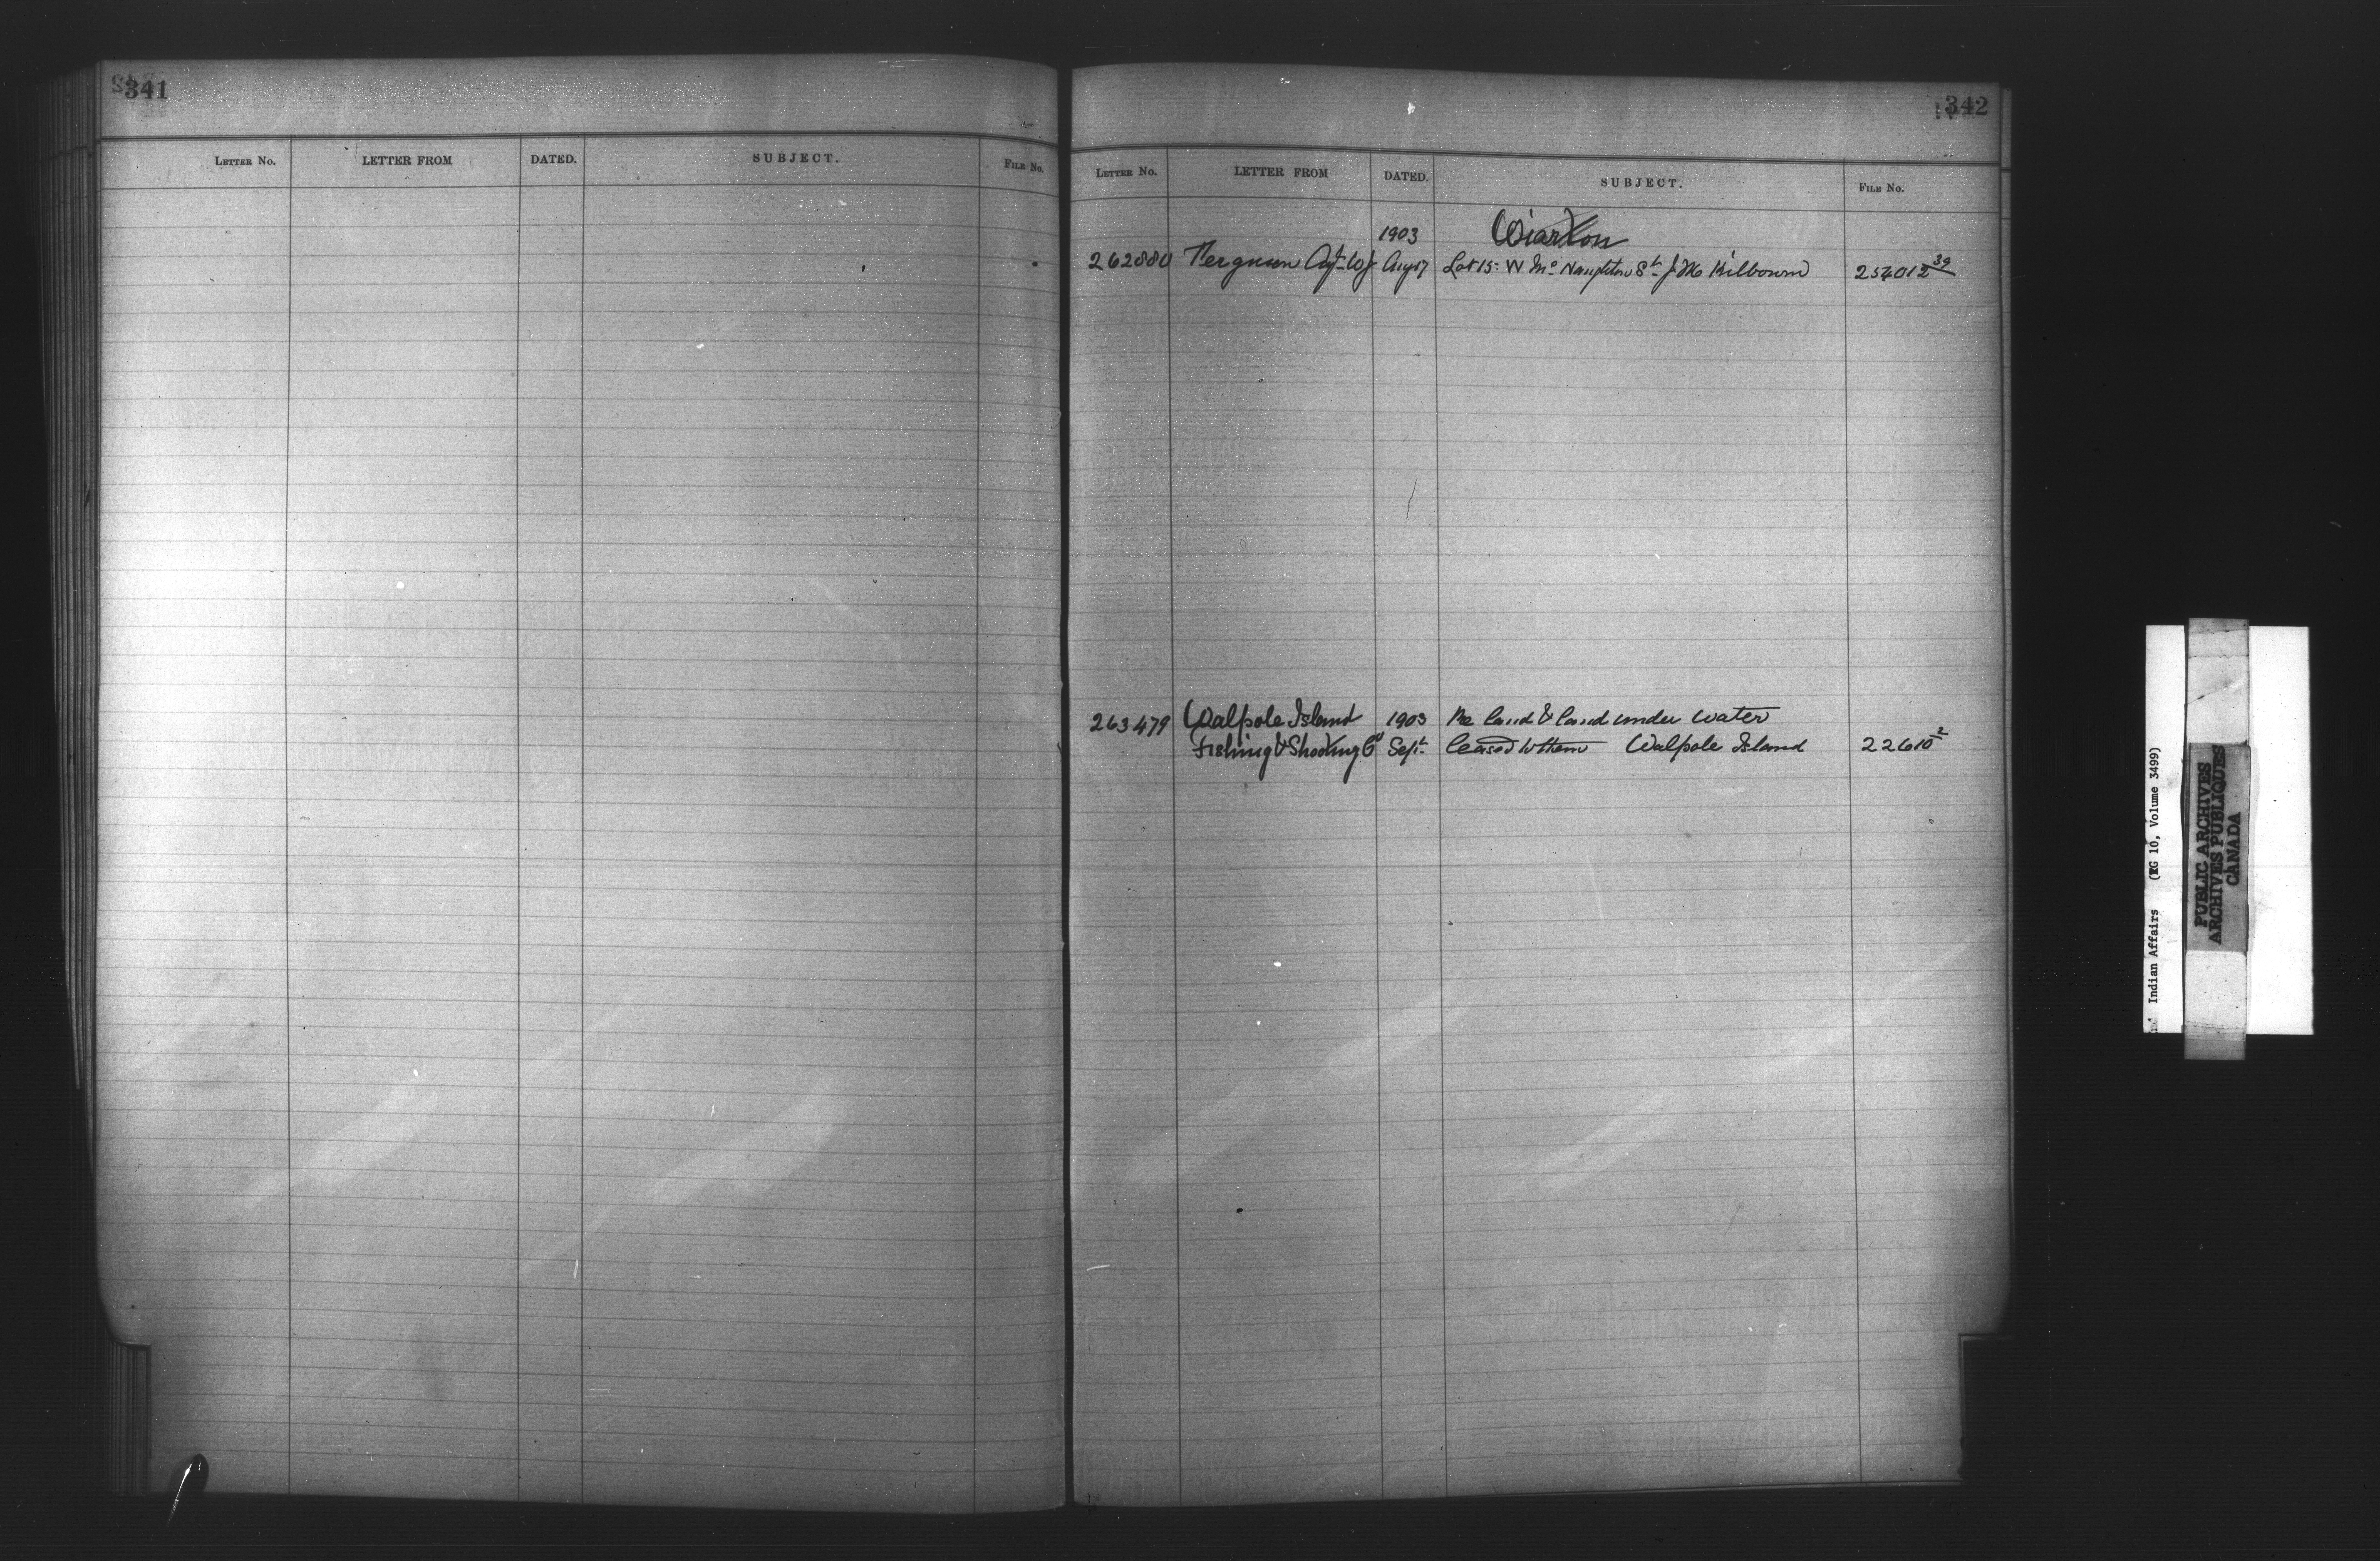 341
LETTER NO. LETTER FROM DATED. SUBJECT. FILE NO.
342
LETTER NO. LETTER FROM DATED. SUBJECT. FILE NO.
1903 Wiarton
262880 Ferguson Agt Wj Aug 17 Lot 15 W McNaughton St J M Kilbourn 254012 39
263479 Walpole Island 1903 Re land & land under water
Fishing & Shooting Co Sept leased to them Walpole Island 22610 2
Indian Affairs (RG 10, Volume 3499)
PUBLIC ARCHIVES
ARCHIVES PUBLIQUES
CANADA